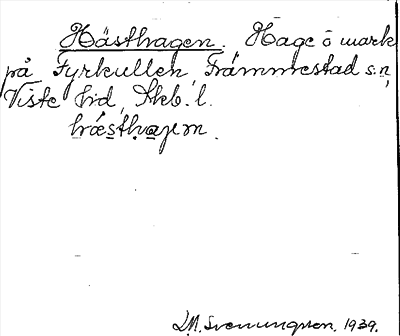 Hästhagen. Hage o mark
på Fyrkullen, Främmestad s:n,
Viste hd, Skb. l.
hæsthajen.
L.M. Svenungsson. 1939.